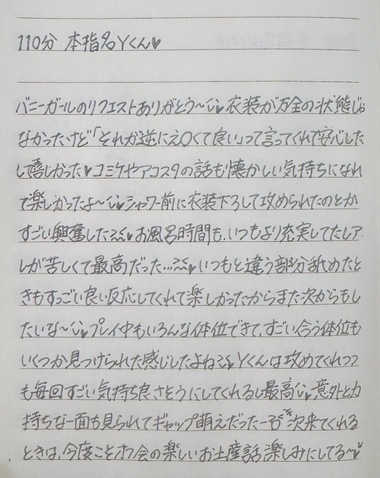 110分 本指名Yくん♥
バニーガールのリクエストありがとう〜♥衣装が万全の状態じゃ
なかったけど「それが逆にえ〇くて良い」って言ってくれて安心した
し嬉しかった♥コミケやアコスタの話も懐かしい気持ちになれ
て楽しかったよ〜♥シャワー前に衣装下ろして攻められたのとか
すごい興奮した お風呂時間も、いつもより充実してたしア
レが苦しくて最高だった… いつもと違う部分舐めたと
きもすっごい良い反応してくれて楽しかったからまた次からもし
たいな〜♥プレイ中もいろんな体位できて、すごい合う体位も
いくつか見つけられた感じしたよね Yくんは攻めてくれつつ
も毎回すごい気持ち良さそうにしてくれるし最高♥意外と力
持ちな一面も見られてギャップ萌えだったー 次来てくれる
ときは、今度こそオフ会の楽しいお土産話楽しみにしてる〜♥